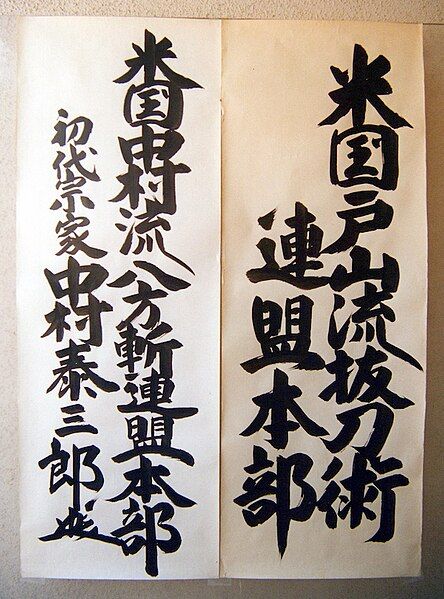 米国戸山流抜刀術
連盟本部
米国中村流八方斬連盟本部
初代宗家中村泰三郎